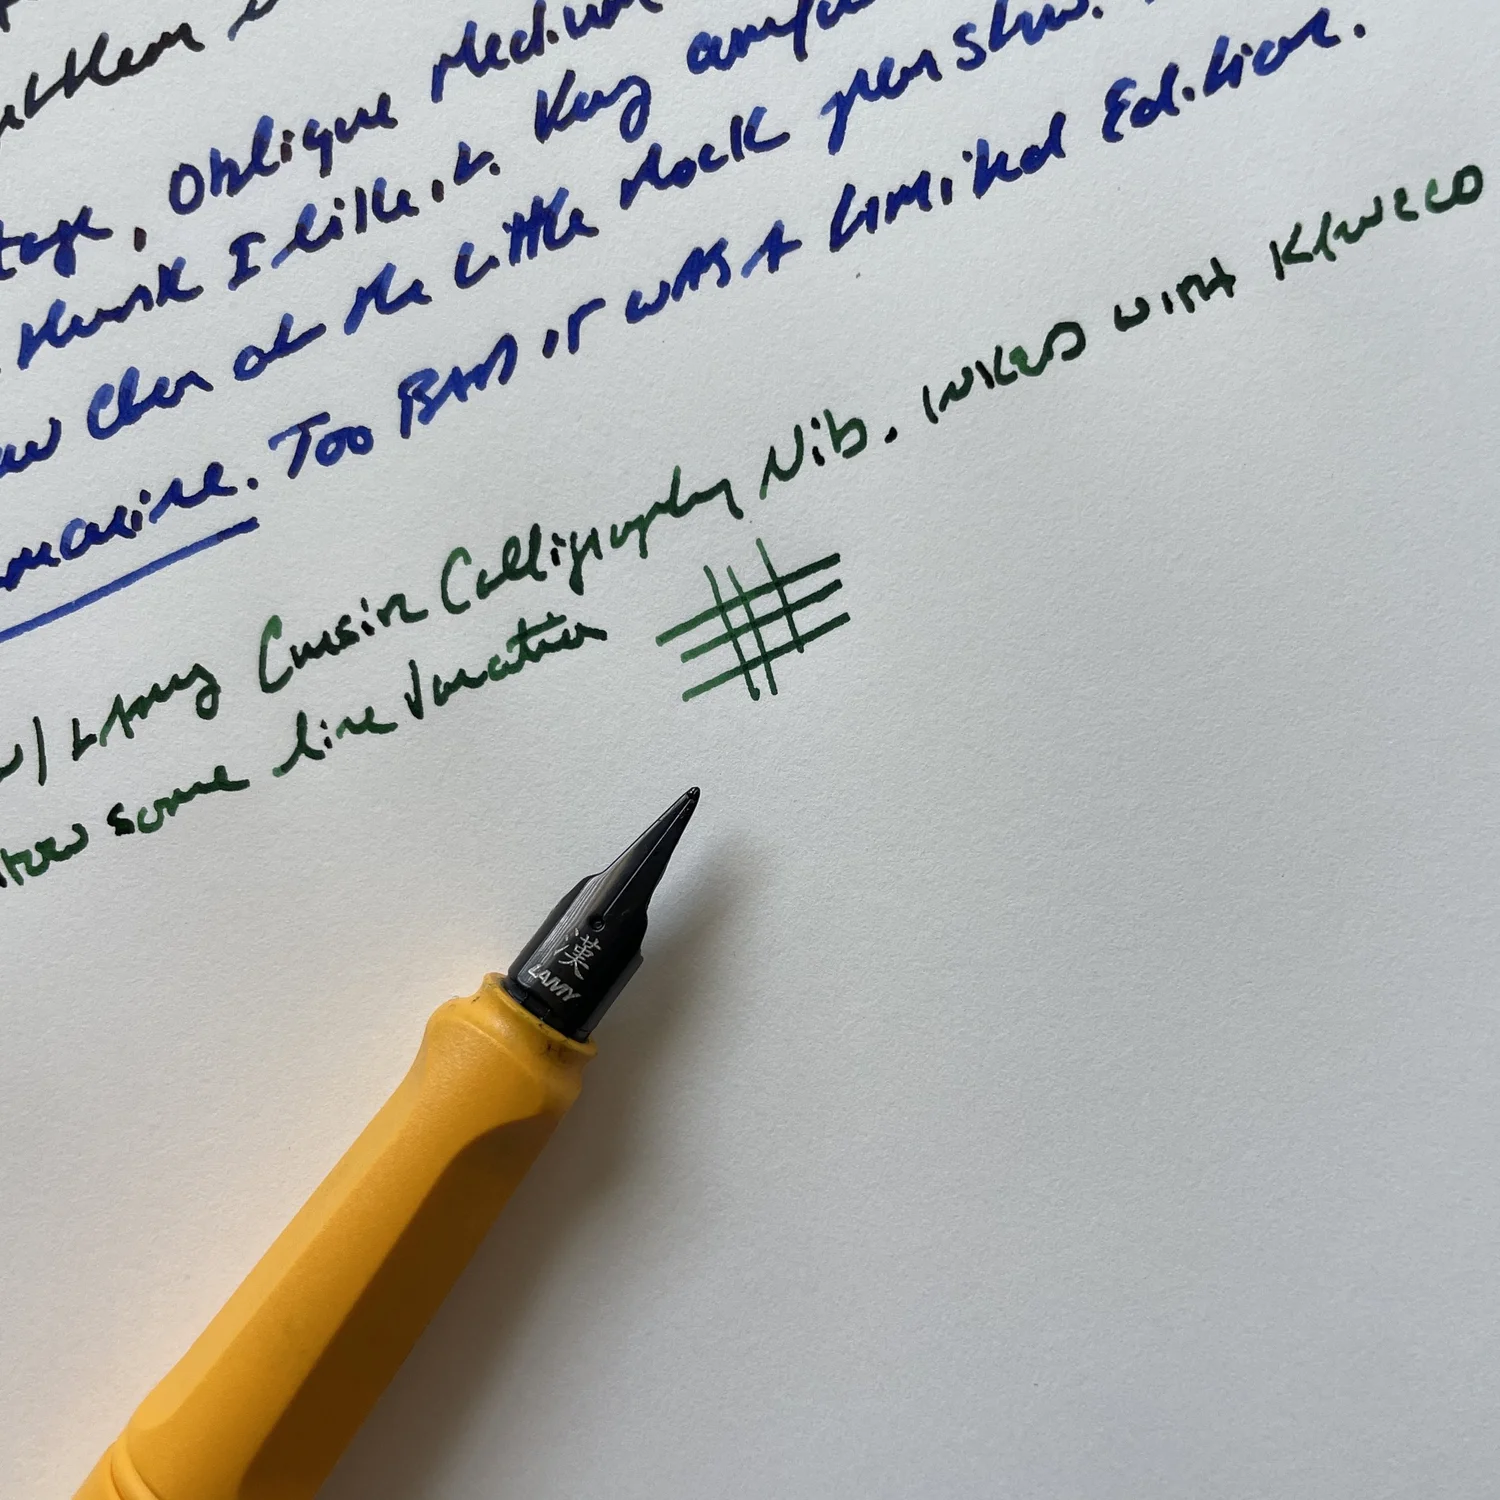 Oblique Medium
think I like it. Kay
Chen at the Little Rock pen show.
. Too BAD it was A Limited Edition.
w/ LAMY Cursive Calligraphy Nib. INKED WITH KAWECO
some line variation
漢
LAMY